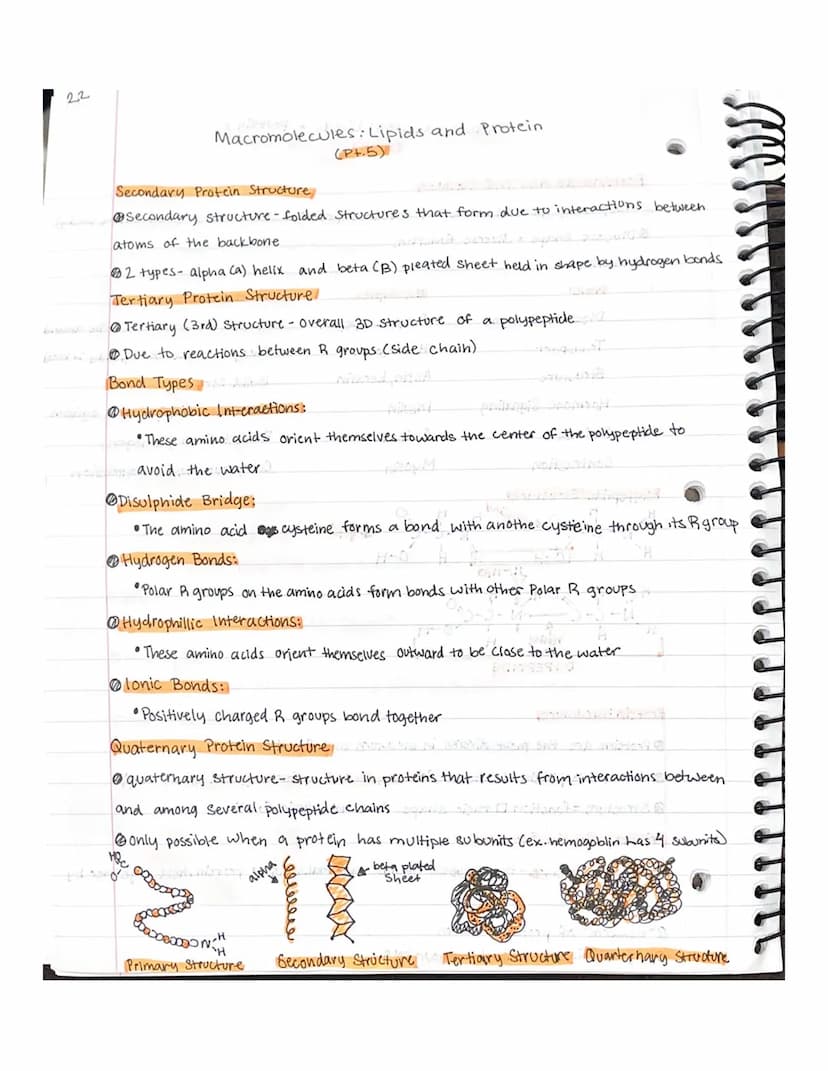 22
Macromolecules: Lipids and Protein
(Pt.5)
Secondary Protein Structure
Secondary structure - folded structures that form due to interactions between
atoms of the backbone
2 types - alpha (a) helix and beta (B) pleated sheet held in shape by hydrogen bonds
Tertiary Protein Structure
Tertiary (3rd) Structure - overall 3D structure of a polypeptide
Due to reactions between R groups (side chain)
Bond Types
Hydrophobic Interactions:
• These amino acids orient themselves towards the center of the polypeptide to
avoid the water
Disulphide Bridge:
• The amino acid cysteine forms a bond with anothe cysteine through its R group
Hydrogen Bonds:
• Polar R groups on the amino acids form bonds with other Polar R groups
Hydrophillic Interactions:
• These amino acids orient themselves outward to be close to the water
Ionic Bonds:
• Positively charged R groups bond together
Quaternary Protein Structure
quaternary structure - structure in proteins that results from interactions between
and among several polypeptide chains
only possible when a protein has multiple subunits (ex. hemogoblin has 4 subunits)
alpha
beta plated
Sheet
N-H
H
Primary Structure
Secondary Structure
Tertiary Structure
Quarternary Structure